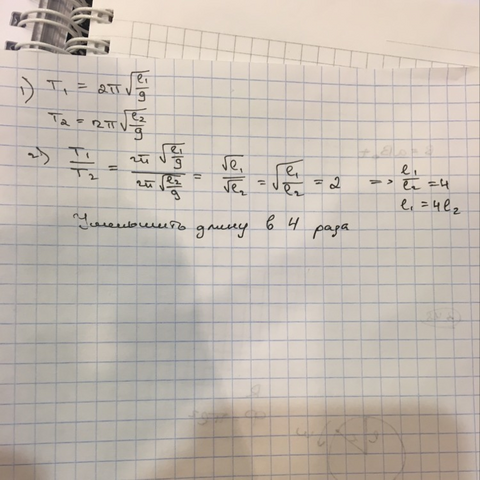 1) T₁ = 2π√(l₁/g)
T₂ = 2π√(l₂/g)
2) T₁/T₂ = 2π√(l₁/g) / 2π√(l₂/g) = √l₁/√l₂ = √(l₁/l₂) = 2 => l₁/l₂ = 4
l₁ = 4l₂
Уменьшить длину в 4 раза